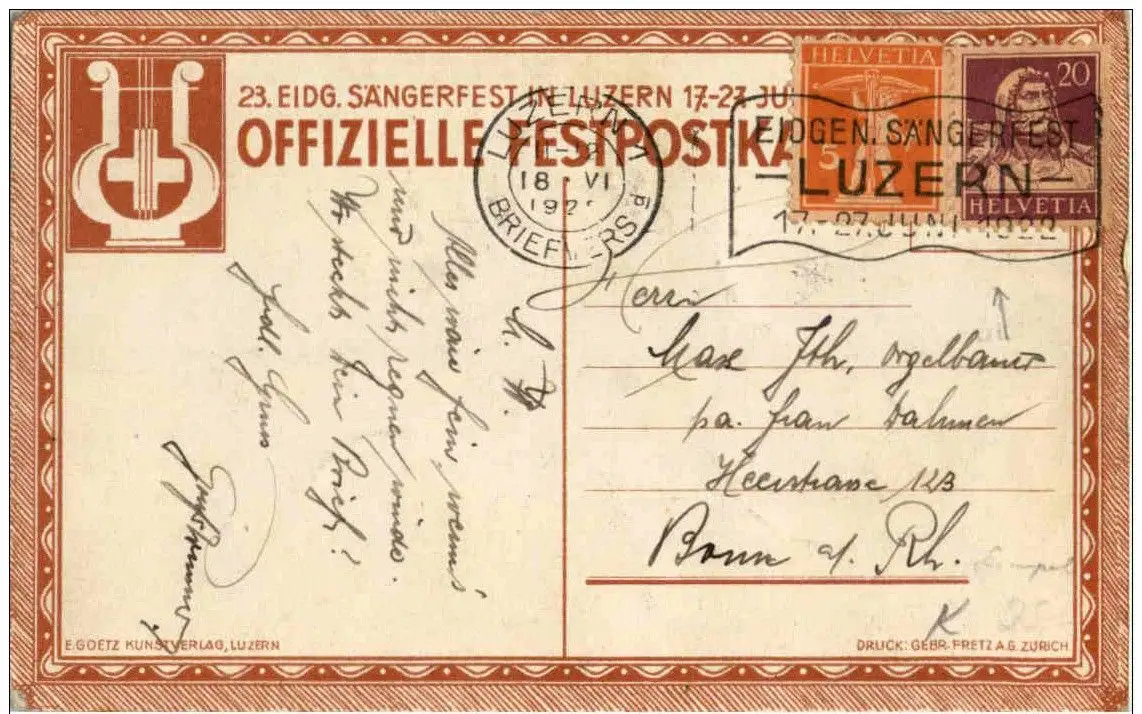 23. EIDG. SÄNGERFEST IN LUZERN 17.-27. JU
OFFIZIELLE FESTPOSTKA
HELVETIA
5
20
HELVETIA
LUZERN 1
18. VI
192
BRIEFVERS
EIDGEN. SÄNGERFEST
LUZERN
17.-27. JUNI 1922
Alles wäre fein, wenns
nur nicht regnen würde.
Wo steckt Dein Brief?
Herrn
Max Orgelbauer
pa. Frau Dahmen
Heerstrasse 123
Bonn a/. Rh.
K
E. GOETZ KUNSTVERLAG, LUZERN
DRUCK: GEBR. FRETZ A.G. ZÜRICH